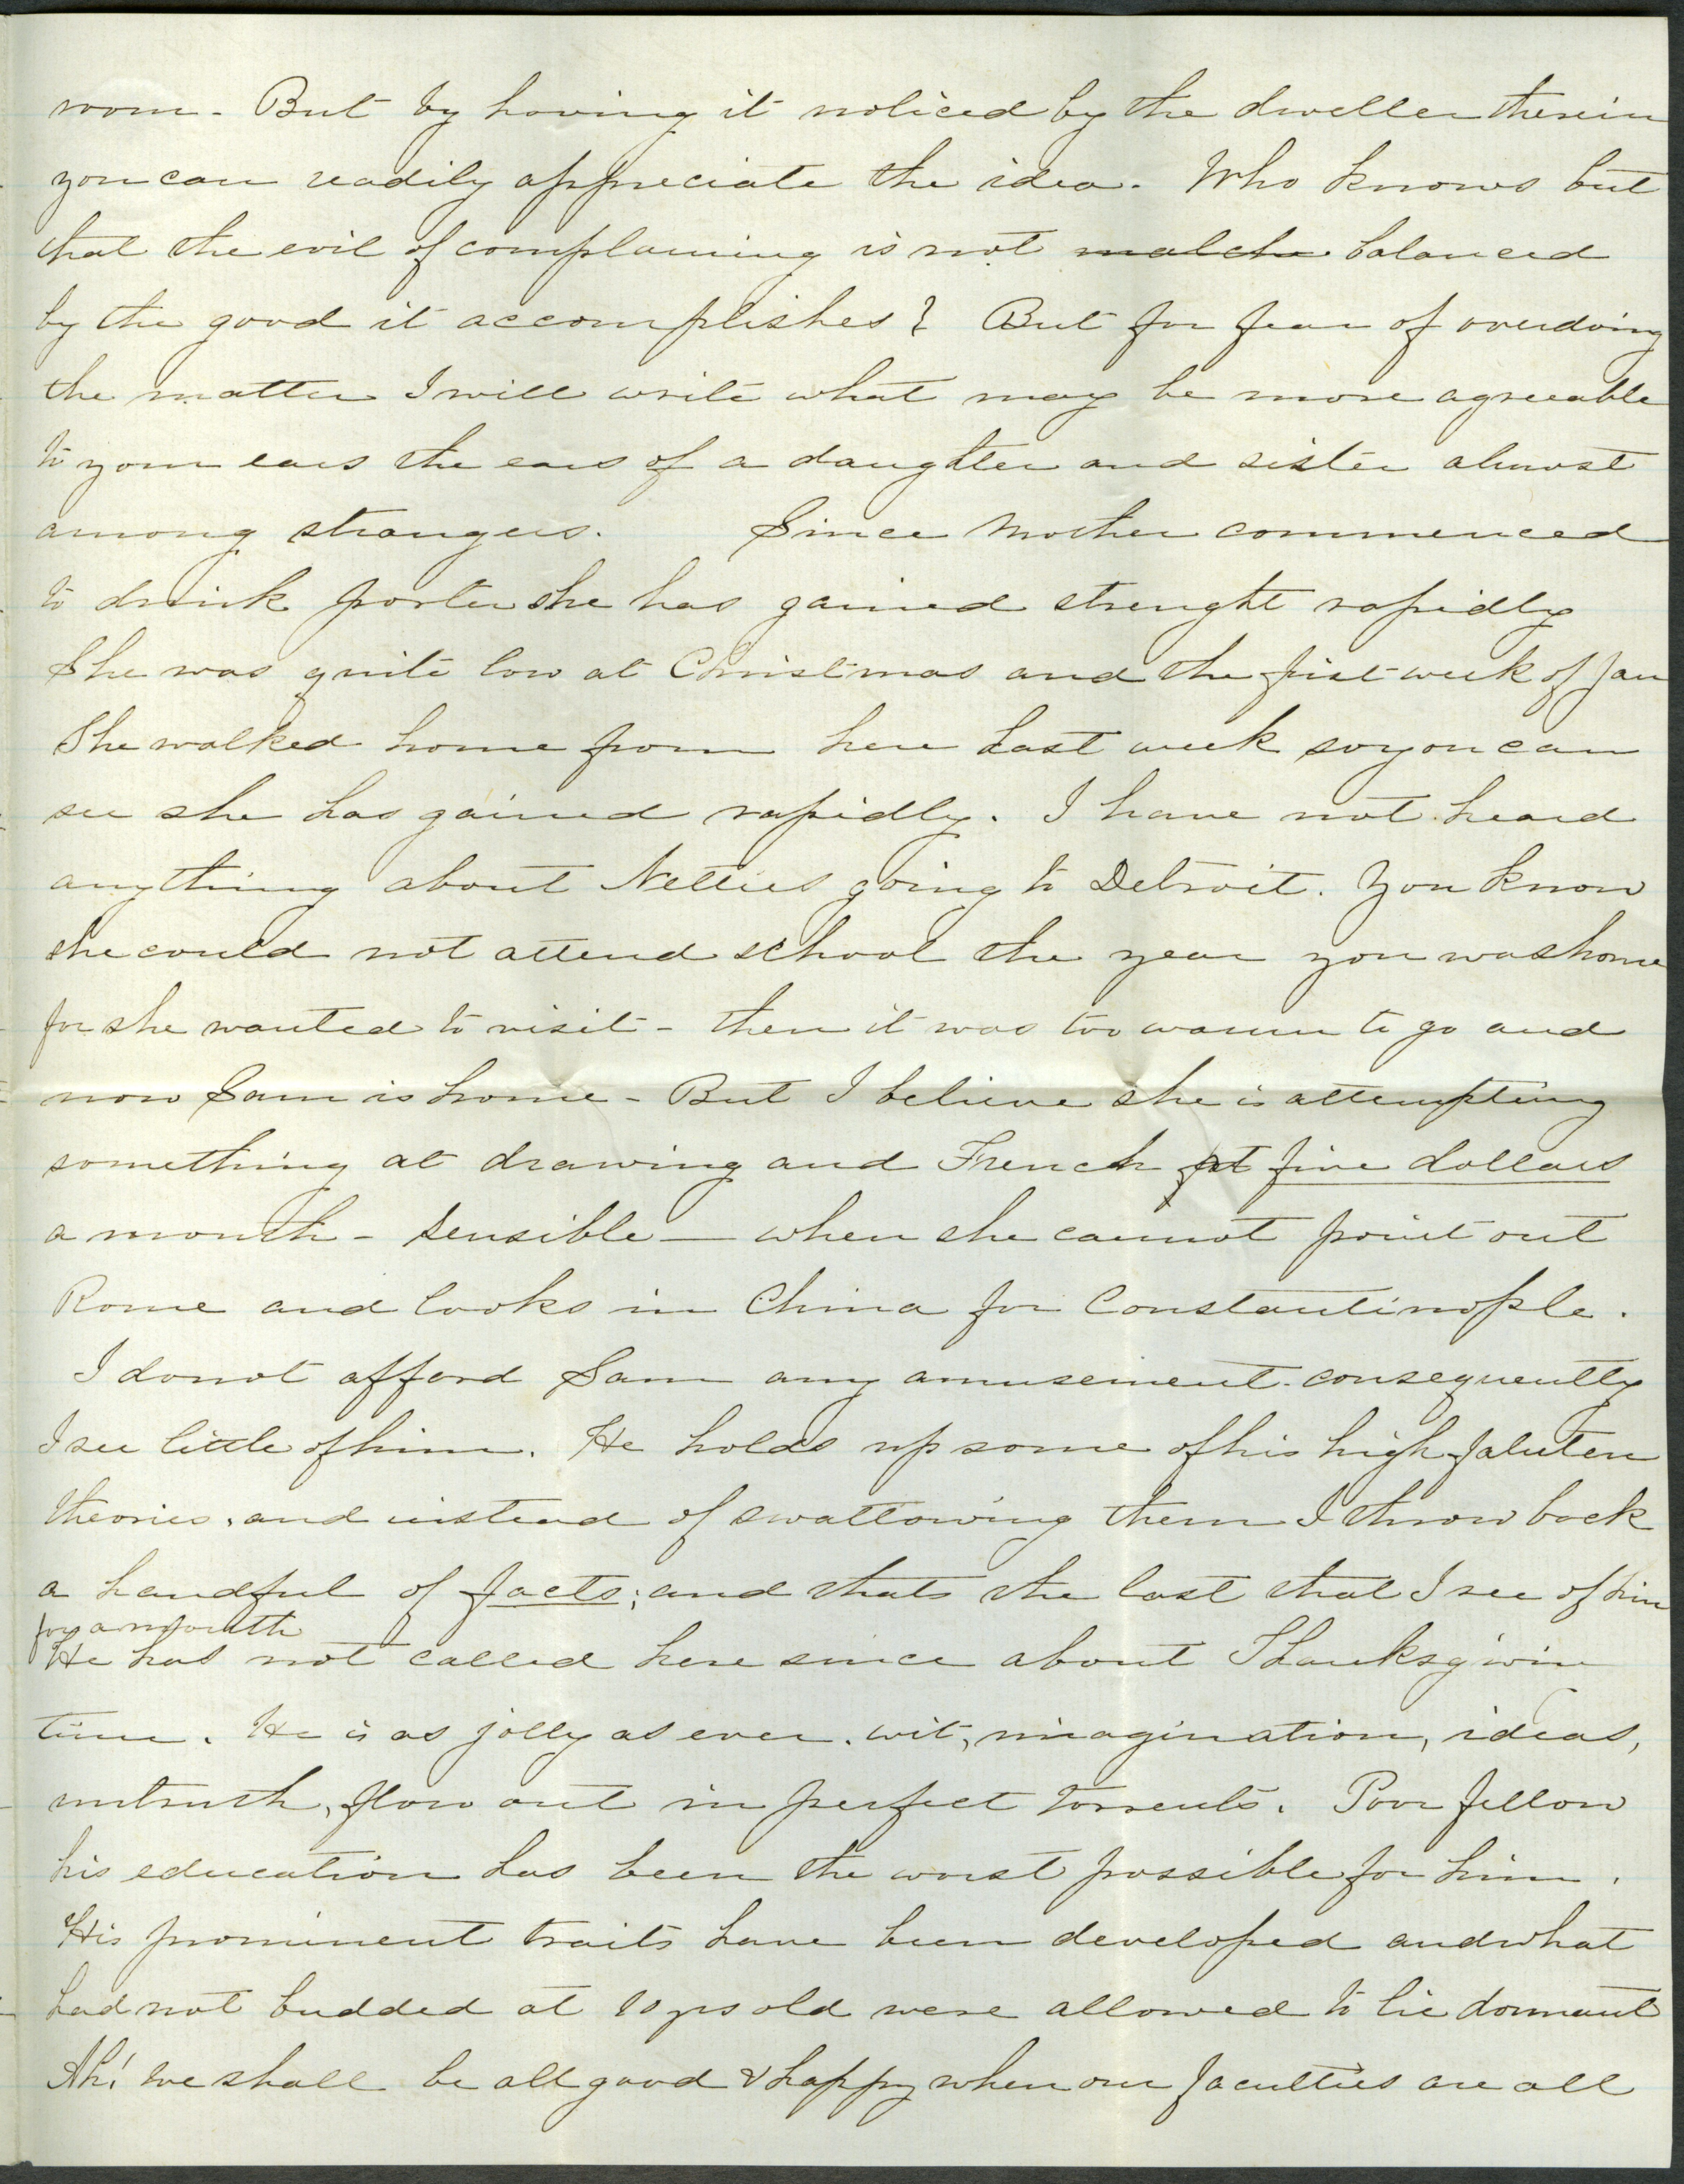 room - But by having it noticed by the dweller therein
you can readily appreciate the idea. Who knows but
that the evil of complaining is not match balanced
by the good it accomplishes? But for fear of overdoing
the matter I will write what may be more agreeable
to your ears the ears of a daughter and sister almost
among strangers. Since Mother commenced
to drink porter she has gained strenght rapidly
She was quite low at Christmas and the first week of Jan
She walked home from here last week so you can
see she has gained rapidly. I have not heard
anything about Netties going to Detroit. You know
she could not attend school the year you was home
for she wanted to visit - then it was too warm to go and
now Sam is home - But I believe she is attempting
something at drawing and French at five dollars
a month - Sensible - when she cannot point out
Rome and looks in China for Constantinople.
I do not afford Sam any amusement consequently
I see little of him. He holds up some of his high faluten
theories, and instead of swallowing them I throw back
a handful of facts; and thats the last that I see of him
for a month
He has not called here since about Thanksgivin
time. He is as jolly as ever. wit, imagination, ideas,
untruth, flow out in perfect torrents. Poor fellow
his education has been the worst possible for him.
His prominent traits have been developed and what
had not budded at 10 yrs old were allowed to lie dormant
Ah! we shall be all good & happy when our faculties are all